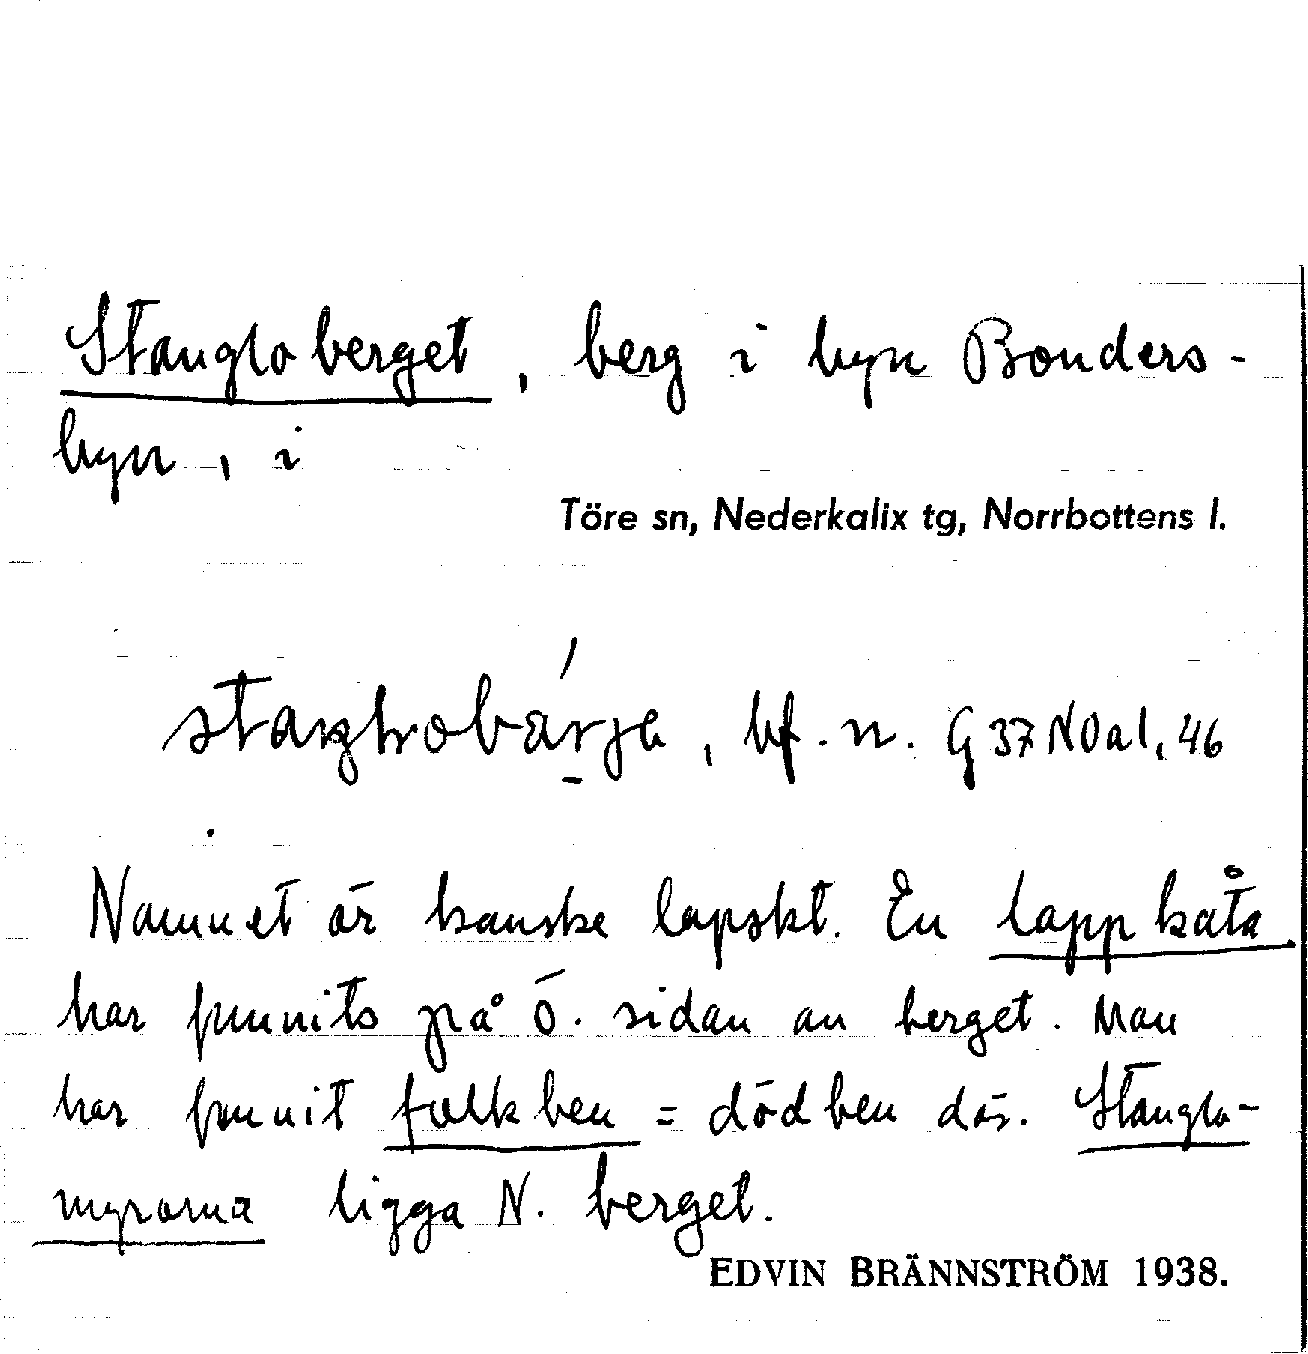 Stangloberget, berg i byn Bonders-
byn, i
Töre sn, Nederkalix tg, Norrbottens l.
bf. n. G 37 NOa1, 46
Namnet är kanske lapskt. En lappkåta
har funnits på Ö. sidan an berget. Man
har funnit folkben = dödben där. Stanglo-
myrorna ligga N. berget.
EDVIN BRÄNNSTRÖM 1938.